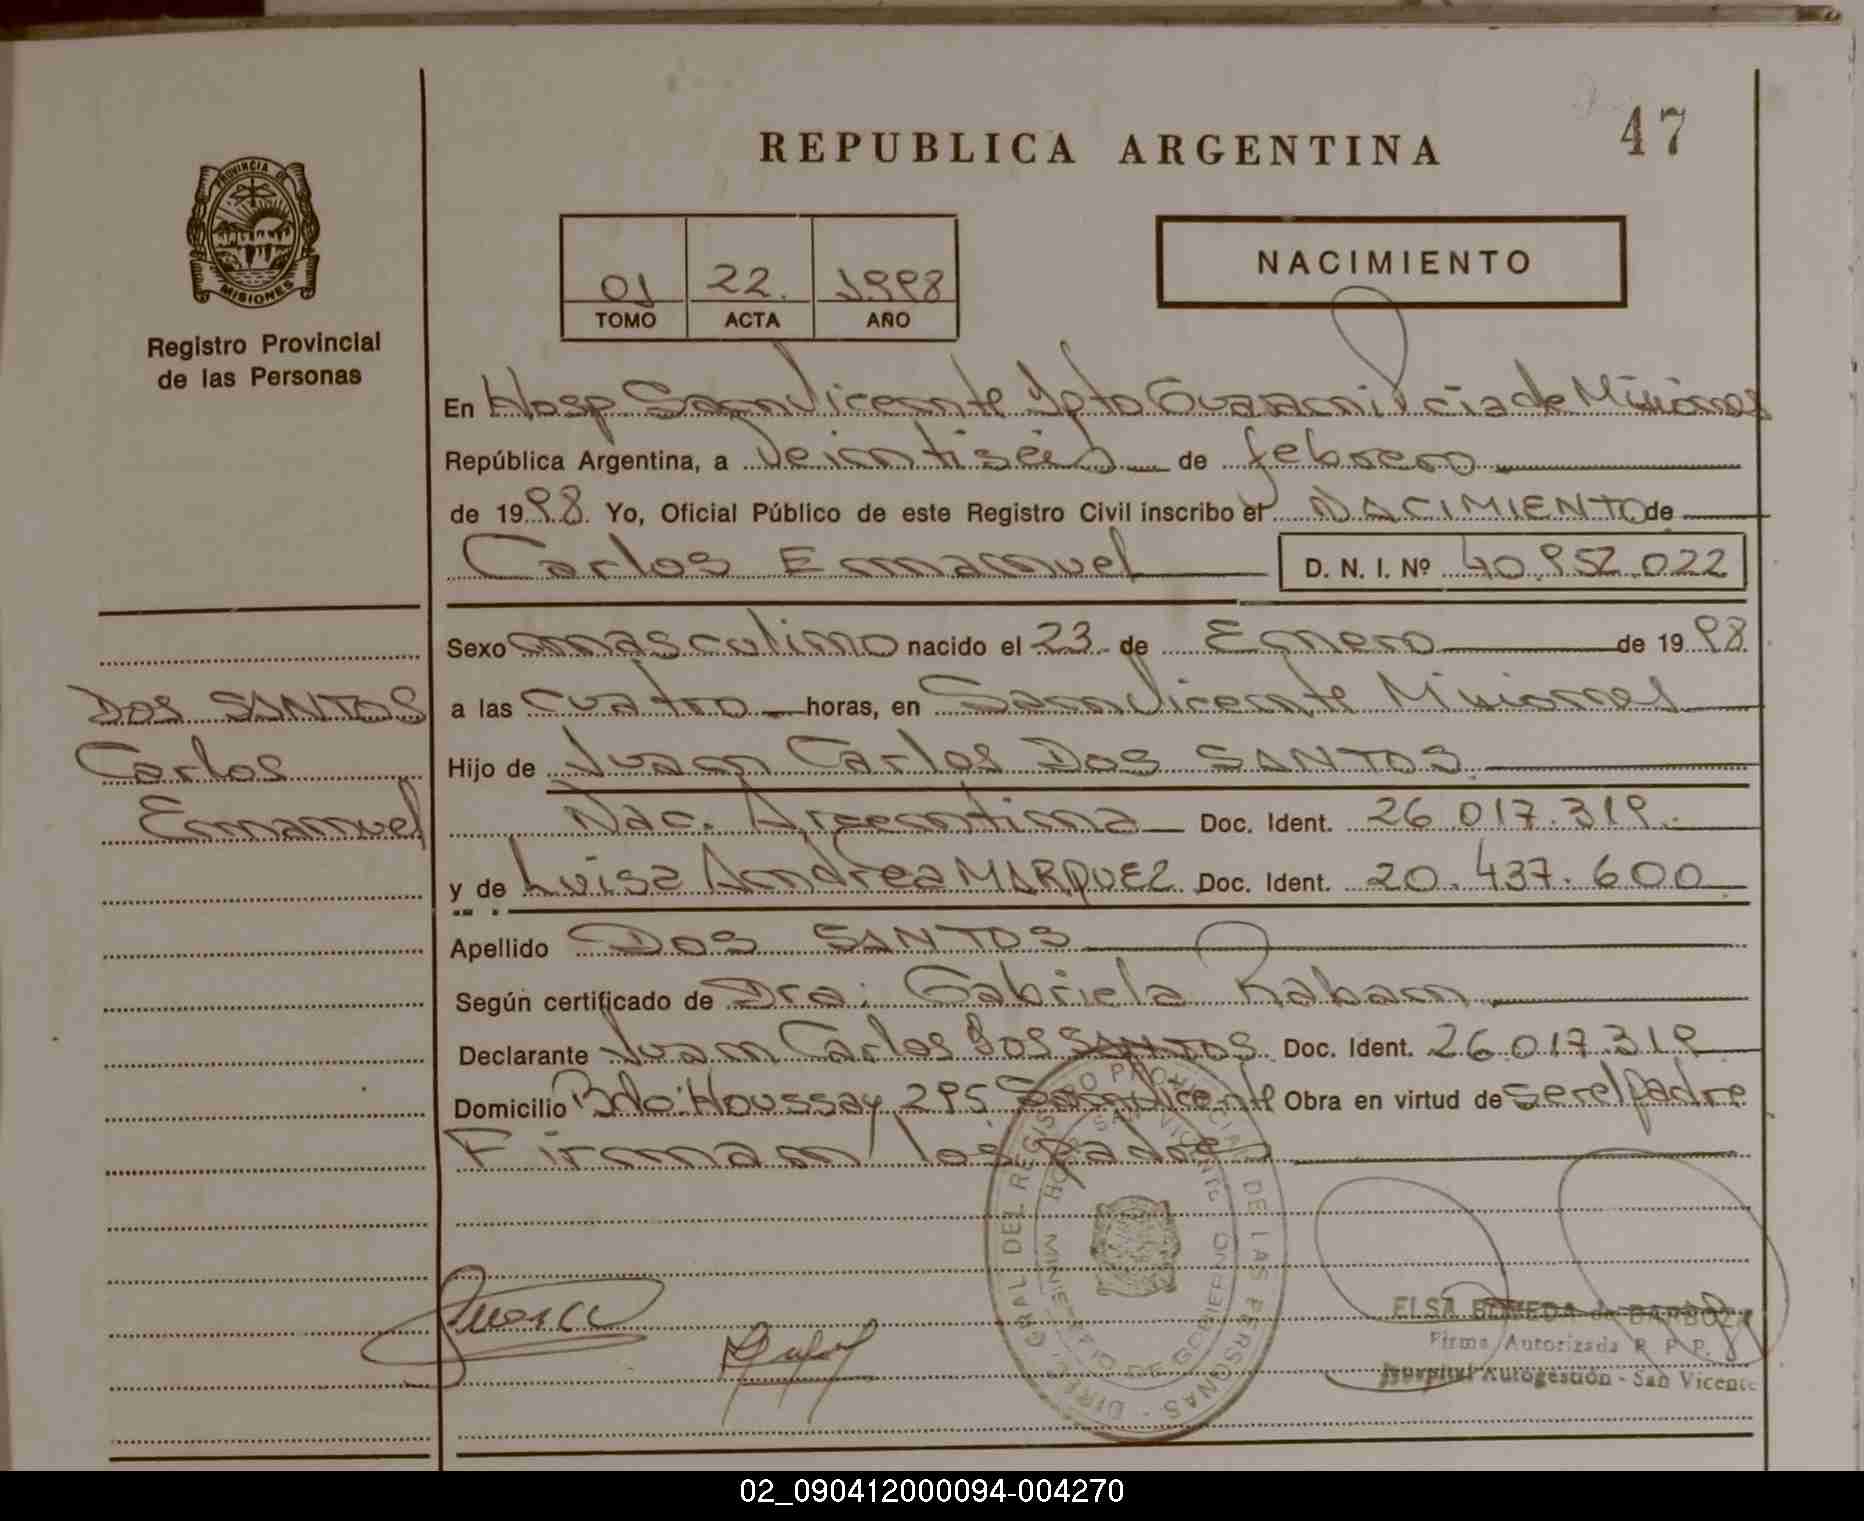 REPUBLICA ARGENTINA
47
PROVINCIA DE
MISIONES
Registro Provincial
de las Personas
01 22. 1998
TOMO ACTA AÑO
NACIMIENTO
En Hosp San Vicente Dpto Guarani Pcia de Misiones
República Argentina, a veintiséis de febrero
de 1998. Yo, Oficial Público de este Registro Civil inscribo el NACIMIENTO de
Carlos Emanuel D. N. I. Nº 40.952.022
Sexo masculino nacido el 23 de Enero de 1998.
DOS SANTOS
Carlos
Emmanuel
a las cuatro horas, en San Vicente Misiones
Hijo de Juan Carlos Dos SANTOS.
Nac. Argentina Doc. Ident. 26.017.319.
y de Luisa Andrea MARQUEZ Doc. Ident. 20.437.600
Apellido Dos SANTOS
Según certificado de Dra. Gabriela Raban
Declarante Juan Carlos Dos SANTOS. Doc. Ident. 26.017.319
Domicilio Bdo. Houssay 295 San Vicente Obra en virtud de ser el padre
Firman los padres
DIREC. GRAL DEL REGISTRO PROVINCIAL DE LAS PERSONAS
HOSP SAN VICENTE
MINISTERIO DE GOBIERNO
ELSA de BARBOZA
Firma Autorizada R. P. P.
Hospital Autogestión - San Vicente
02_090412000094-004270